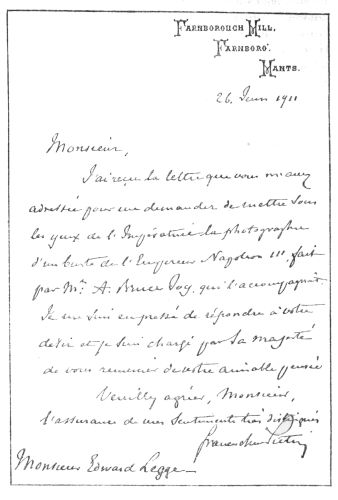 Farnborough Hill,
Farnboro'.
Hants.
26. Juin 1911
Monsieur,
J'ai reçu la lettre que vous m'avez
adressée pour me demander de mettre sous
les yeux de l'Impératrice la photographie
d'un buste de l'Empereur Napoléon III, fait
par Mr. A. Bruce Joy, qui l'accompagnait.
Je me suis empressé de répondre à votre
désir et je suis chargé par Sa Majesté
de vous remercier de votre aimable pensée
Veuillez agréer, Monsieur,
l'assurance de mes sentiments très distingués
Franceschini Pietri
Monsieur Edward Legge